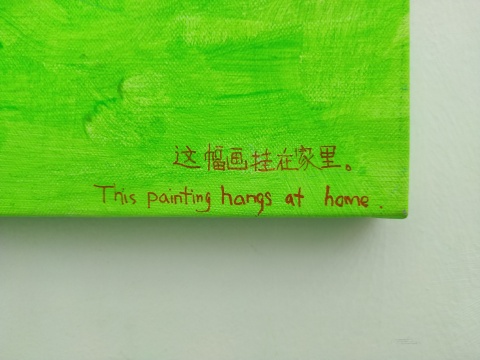 这幅画挂在家里。
This painting hangs at home.